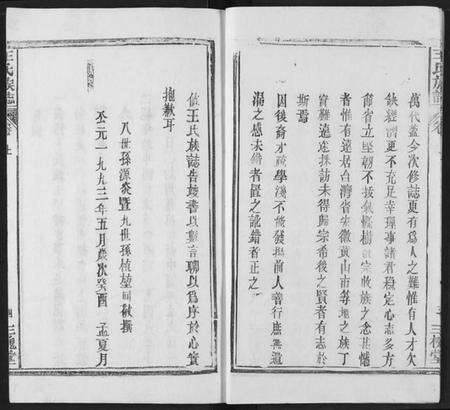 王氏族誌
萬代盖今次修誌更有爲人之難惟有人才欠
缺經濟更不充足幸理事諸君穩定心志多方
奋立坚韌不拔氣概樹宗敬族之念甚憾
者惟有遠居台灣省安徽黄山市等地之族丁
實難遠达採訪未得歸宗希後之賢者有志於
斯焉
因後裔才疎學淺不能發揚前人善行庶無遺
漏之感未備者置之訛錯者正之
三槐堂
值王氏族誌告竣書以數言聊以爲序於心實
抱歉耳
八世孫源炎暨九世孫植堃敬撰
公元一九九三年五月歲次癸酉 孟夏月
王氏族誌
三槐堂